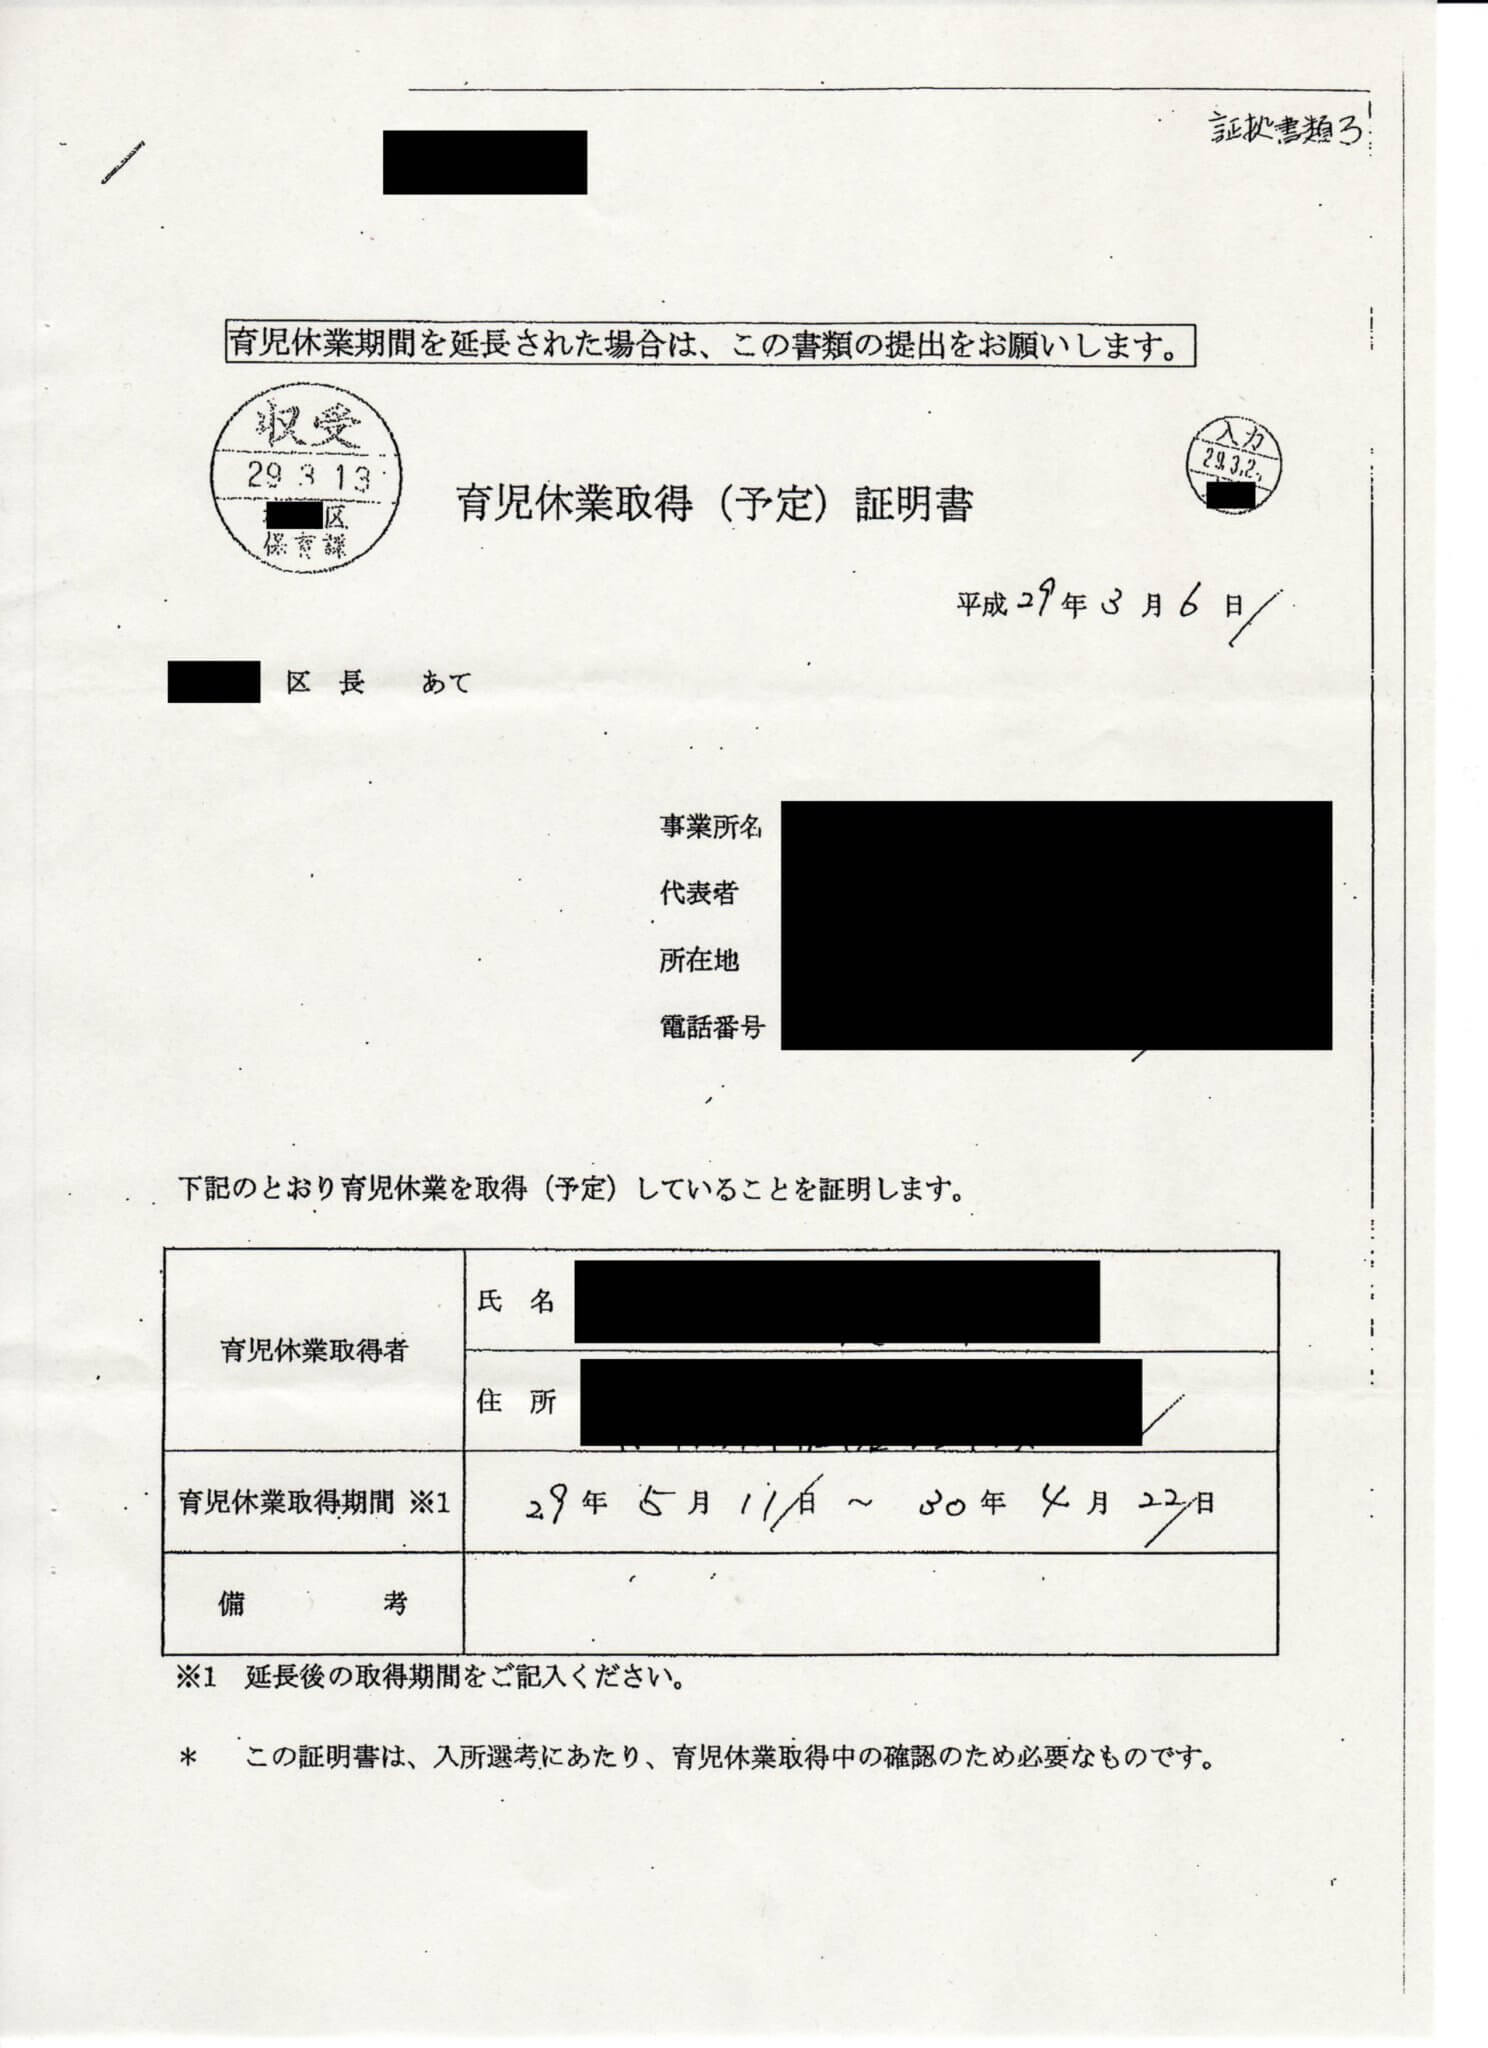 証拠書類3
育児休業期間を延長された場合は、この書類の提出をお願いします。
収受
29 3 13
区
保育課
入力
29.3.2
育児休業取得（予定）証明書
平成29年3月6日
区 長 あて
事業所名
代表者
所在地
電話番号
下記のとおり育児休業を取得（予定）していることを証明します。
育児休業取得者
氏 名
住 所
育児休業取得期間 ※1
29年 5月 11日 ～ 30年 4月 22日
備 考
※1 延長後の取得期間をご記入ください。
＊ この証明書は、入所選考にあたり、育児休業取得中の確認のため必要なものです。